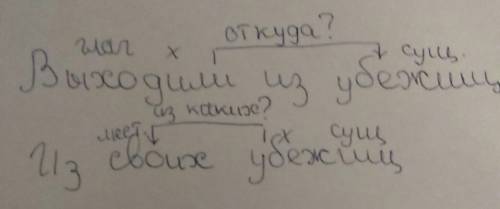 глаг х откуда? сущ.
Выходили из убежищ
из каких?
мест х сущ
Из своих убежищ